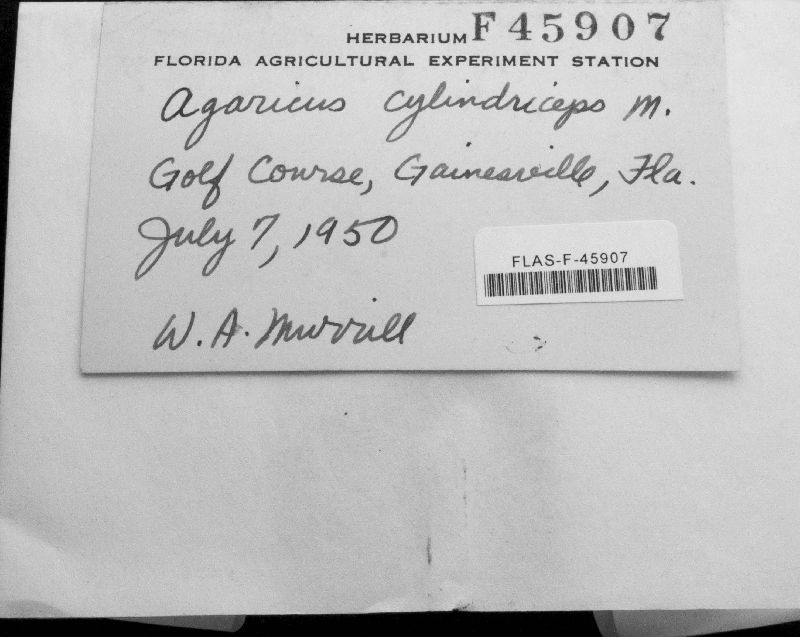 HERBARIUM F45907
FLORIDA AGRICULTURAL EXPERIMENT STATION
Agaricus cylindriceps M.
Golf Course, Gainesville, Fla.
July 7, 1950
FLAS-F-45907
W. A. Murrill